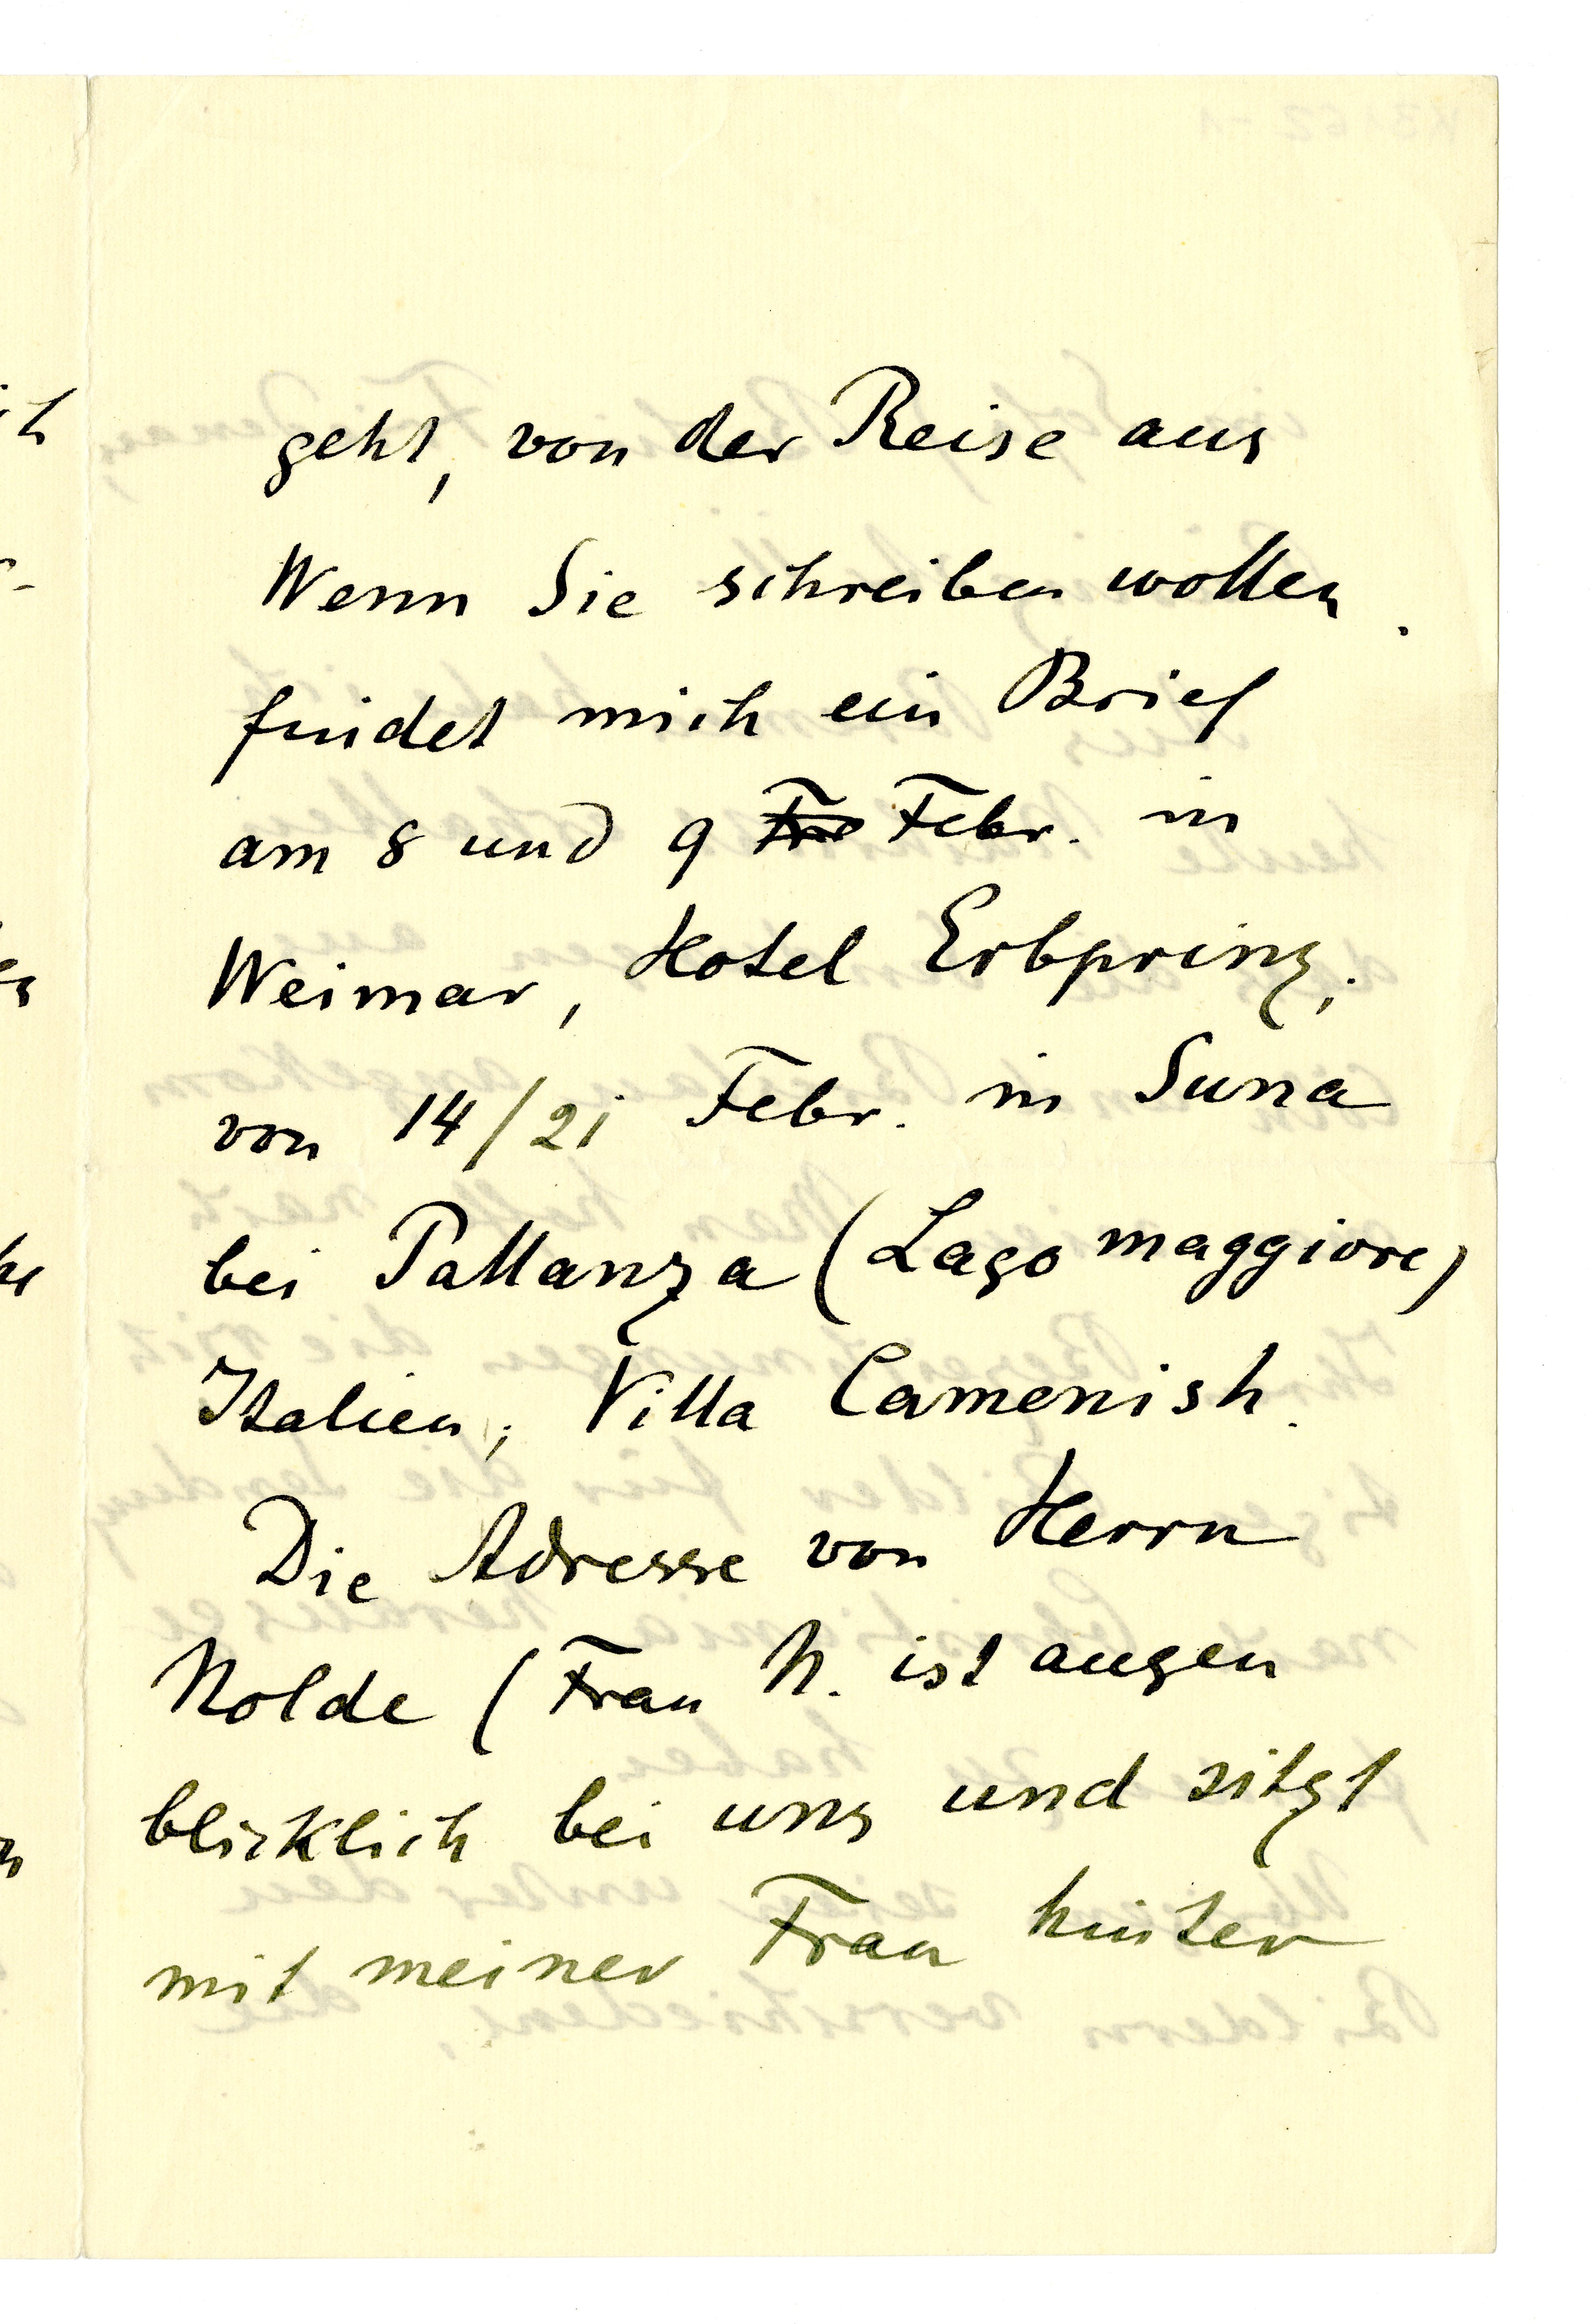 geht, von der Reise aus
Wenn Sie schreiben wollen.
findet mich ein Brief
am 8 und 9 Febr. in
Weimar, Hotel Erbprinz;
von 14/21 Febr. in Suna
bei Pallanza (Lago maggiore)
Italien; Villa Camenish.
Die Adresse von Herrn
Nolde (Frau N. ist augen
blicklich bei uns und sitzt
mit meiner Frau hinter